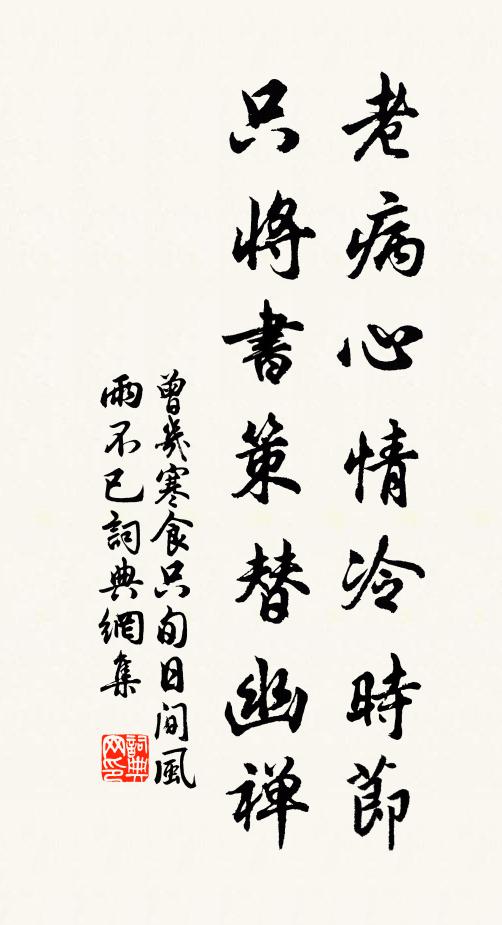 老病心情冷時節
只將書策替幽禅
曾幾寒食只旬日間風
雨不已詞典網集
詞典网印